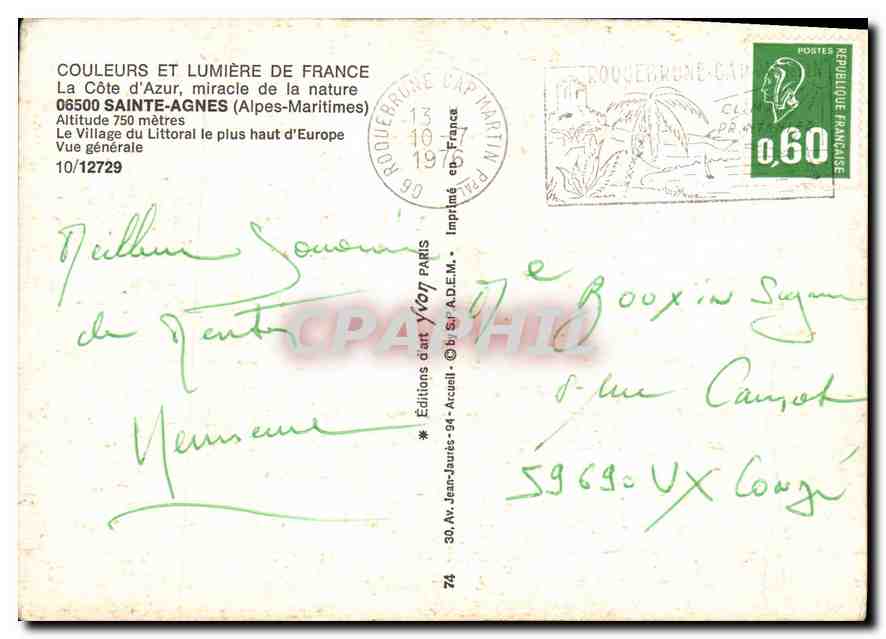 COULEURS ET LUMIÈRE DE FRANCE
La Côte d'Azur, miracle de la nature
06500 SAINTE-AGNES (Alpes-Maritimes)
Altitude 750 mètres
Le Village du Littoral le plus haut d'Europe
Vue générale
10/12729
06 ROQUEBRUNE CAP MARTIN PPAL
13
10-7
1976
ROQUEBRUNE-CAP
POSTES
RÉPUBLIQUE FRANÇAISE
0,60
Meilleur Souvenir
de Menton
✷ Éditions d'art Yvon PARIS
30, Av. Jean-Jaurès - 94 - Arcueil - © by S.P.A.D.E.M. - Imprimé en France
74
CPAPHIL
Me
8 rue Carnot
59690 VX Condé